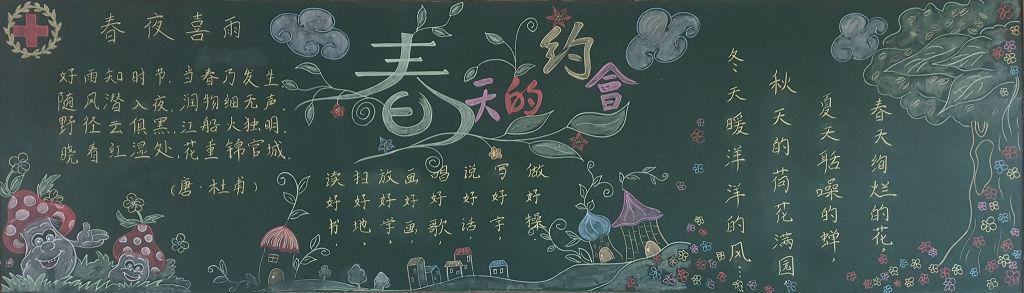 春夜喜雨
好雨知时节,当春乃发生.
随风潜入夜,润物细无声.
野径云俱黑,江船火独明.
晓看红湿处,花重锦官城.
(唐·杜甫)
春天的约會
读好书,
扫好地,
放好学,
画好画,
唱好歌,
说好话,
写好字,
做好操
春天绚烂的花,
夏天聒噪的蝉,
秋天的荷花满园
冬天暖洋洋的风……